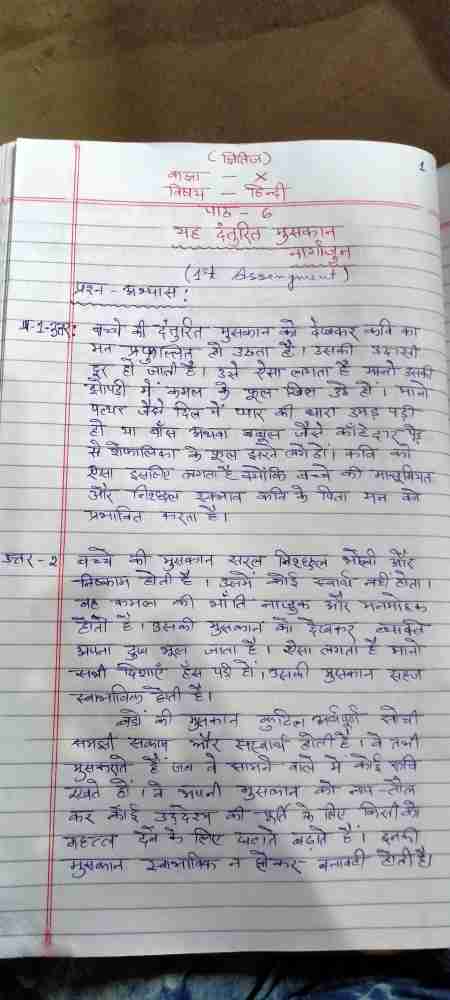 1
(क्षितिज)
कक्षा - X
विषय - हिन्दी
पाठ - 6
यह दंतुरित मुसकान
नागार्जुन
(1st Assignment)
प्रश्न - अभ्यास :
प्र-1-उत्तर: बच्चे की दंतुरित मुसकान को देखकर कवि का
मन प्रफुल्लित हो उठता है। उसकी उदासी
दूर हो जाती है। उसे ऐसा लगता है मानो उसकी
झोपड़ी में कमल के फूल खिल उठे हों। मानो
पत्थर जैसे दिल में प्यार की धारा उमड़ पड़ी
हो या बाँस अथवा बबूल जैसे काँटेदार पेड़
से शेफालिका के फूल झरने लगे हों। कवि को
ऐसा इसलिए लगता है क्योंकि बच्चे की मासूमियत
और निश्छल स्वभाव कवि के पिता मन को
प्रभावित करता है।
उत्तर - 2 बच्चे की मुसकान सरल निश्छल भोली और
निष्काम होती है। उसमें कोई स्वार्थ नहीं होता।
वह कमल की भाँति नाजुक और मनमोहक
होती है। उसकी मुसकान को देखकर व्यक्ति
अपना दुख भूल जाता है। ऐसा लगता है मानो
सभी दिशाएँ हँस पड़ी हों। उसकी मुसकान सहज
स्वाभाविक होती है।
बड़ों की मुसकान कुटिल अर्थपूर्ण सोची
समझी सकाम और सस्वार्थ होती है। वे तभी
मुसकराते हैं जब वे सामने वाले में कोई रुचि
रखते हों। वे अपनी मुसकान को नाप-तौल
कर कोई उद्देश्य की पूर्ति के लिए किसी को
महत्त्व देने के लिए घटाते बढ़ाते हैं। इनकी
मुसकान स्वाभाविक न होकर बनावटी होती है।